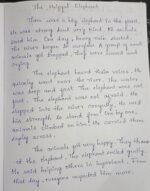 The Helpful Elephant
There was a big elephant in the forest.
He was strong but very kind. All animals
liked him. One day, heavy rain started.
The river began to overflow. A group of small
animals got trapped. They were scared and
crying.
The elephant heard their voices. He
quickly went near the river. The water
was deep and fast. The elephant was not afraid. He
stepped into the river carefully. He used
his strength to stand firm. One by one,
animals climbed on him. He carried them
safely across.
The animals were very happy. They thanked
the elephant. The elephant smiled gently.
He said helping others is important. From
that day, everyone respected him more.